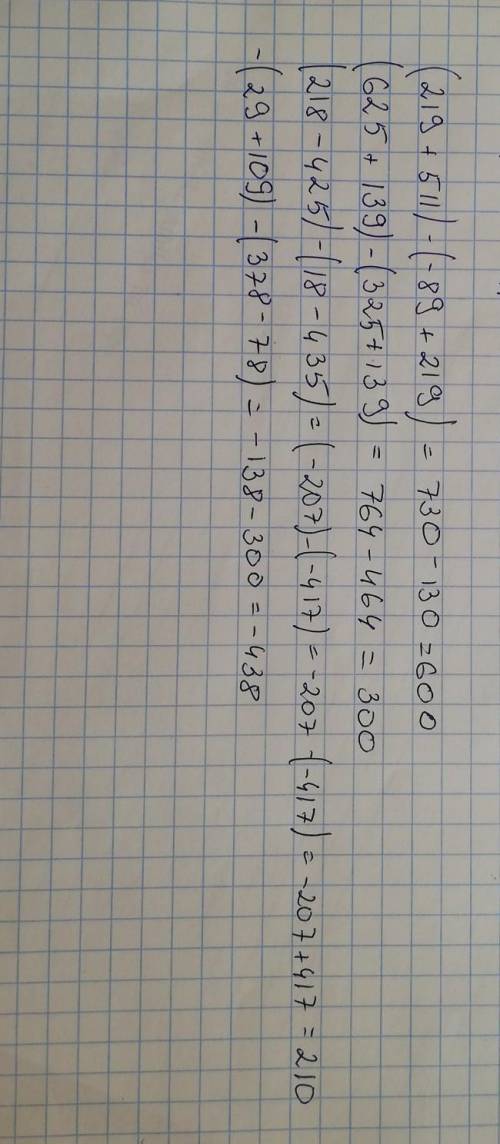 (219 + 511) - (-89 + 219) = 730 - 130 = 600
(625 + 139) - (325 + 139) = 764 - 464 = 300
(218 - 425) - (18 - 435) = (-207) - (-417) = -207 - (-417) = -207 + 417 = 210
-(29 + 109) - (378 - 78) = -138 - 300 = -438